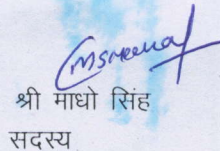 श्री माधो सिंह
सदस्य